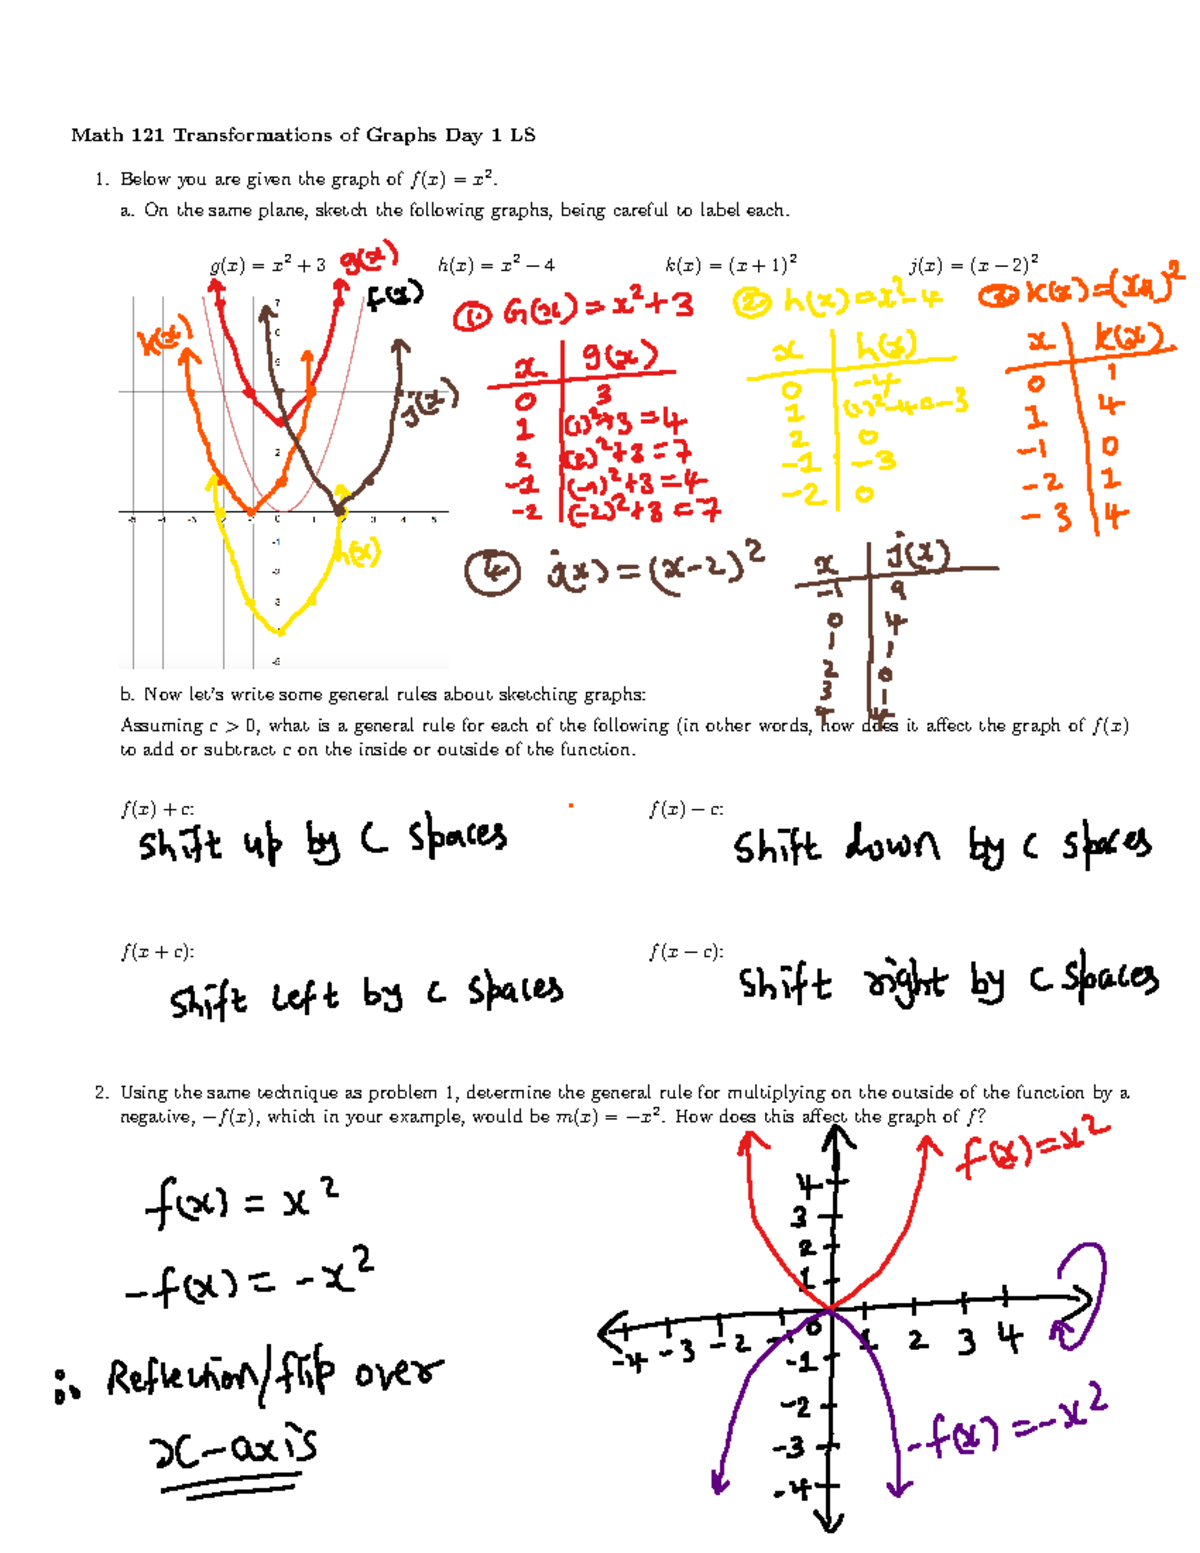 Math 121 Transformations of Graphs Day 1 LS
1. Below you are given the graph of f(x) = x².
a. On the same plane, sketch the following graphs, being careful to label each.
g(x) = x² + 3 g(x) h(x) = x² − 4 k(x) = (x + 1)² j(x) = (x − 2)²
f(x)
k(x)
j(x)
h(x)
① G(x) = x² + 3
x | g(x)
0 | 3
1 | (1)²+3 = 4
2 | (2)²+3 = 7
-1 | (-1)²+3 = 4
-2 | (-2)²+3 = 7
② h(x) = x² - 4
x | h(x)
0 | -4
1 | (1)²-4 = -3
2 | 0
-1 | -3
-2 | 0
③ k(x) = (x+1)²
x | k(x)
0 | 1
1 | 4
-1 | 0
-2 | 1
-3 | 4
④ j(x) = (x-2)²
x | j(x)
-1 | 9
0 | 4
1 | 1
2 | 0
3 | 1
4 | 4
b. Now let's write some general rules about sketching graphs:
Assuming c > 0, what is a general rule for each of the following (in other words, how does it affect the graph of f(x)
to add or subtract c on the inside or outside of the function.
f(x) + c: f(x) − c:
Shift up by C spaces Shift down by C spaces
f(x + c): f(x − c):
Shift left by C spaces Shift right by C spaces
2. Using the same technique as problem 1, determine the general rule for multiplying on the outside of the function by a
negative, −f(x), which in your example, would be m(x) = −x². How does this affect the graph of f?
f(x) = x²
-f(x) = -x²
∴ Reflection/flip over
x-axis
f(x) = x²
4
3
2
1
-4 -3 -2 -1 0 1 2 3 4
-1
-2
-3
-4
-f(x) = -x²